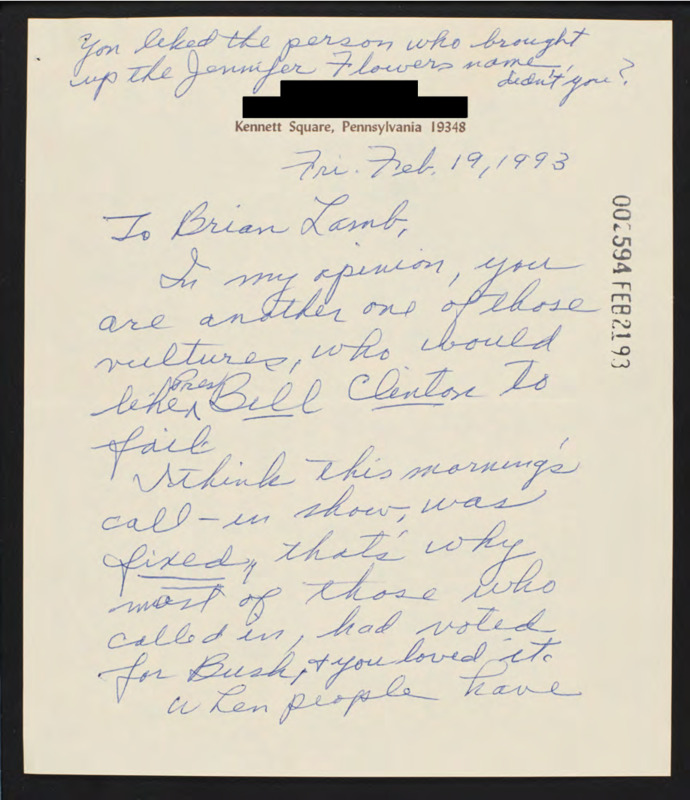 You liked the person who brought
up the Jennifer Flowers name,
didn't you?
Kennett Square, Pennsylvania 19348
Fri. Feb. 19, 1993
To Brian Lamb,
In my opinion, you
are another one of those
vultures, who would
like Pres. Bill Clinton to
fail
I think this morning's
call-in show, was
fixed, that's why
most of those who
called in, had voted
for Bush, + you loved it.
When people have
002594 FEB 21 93